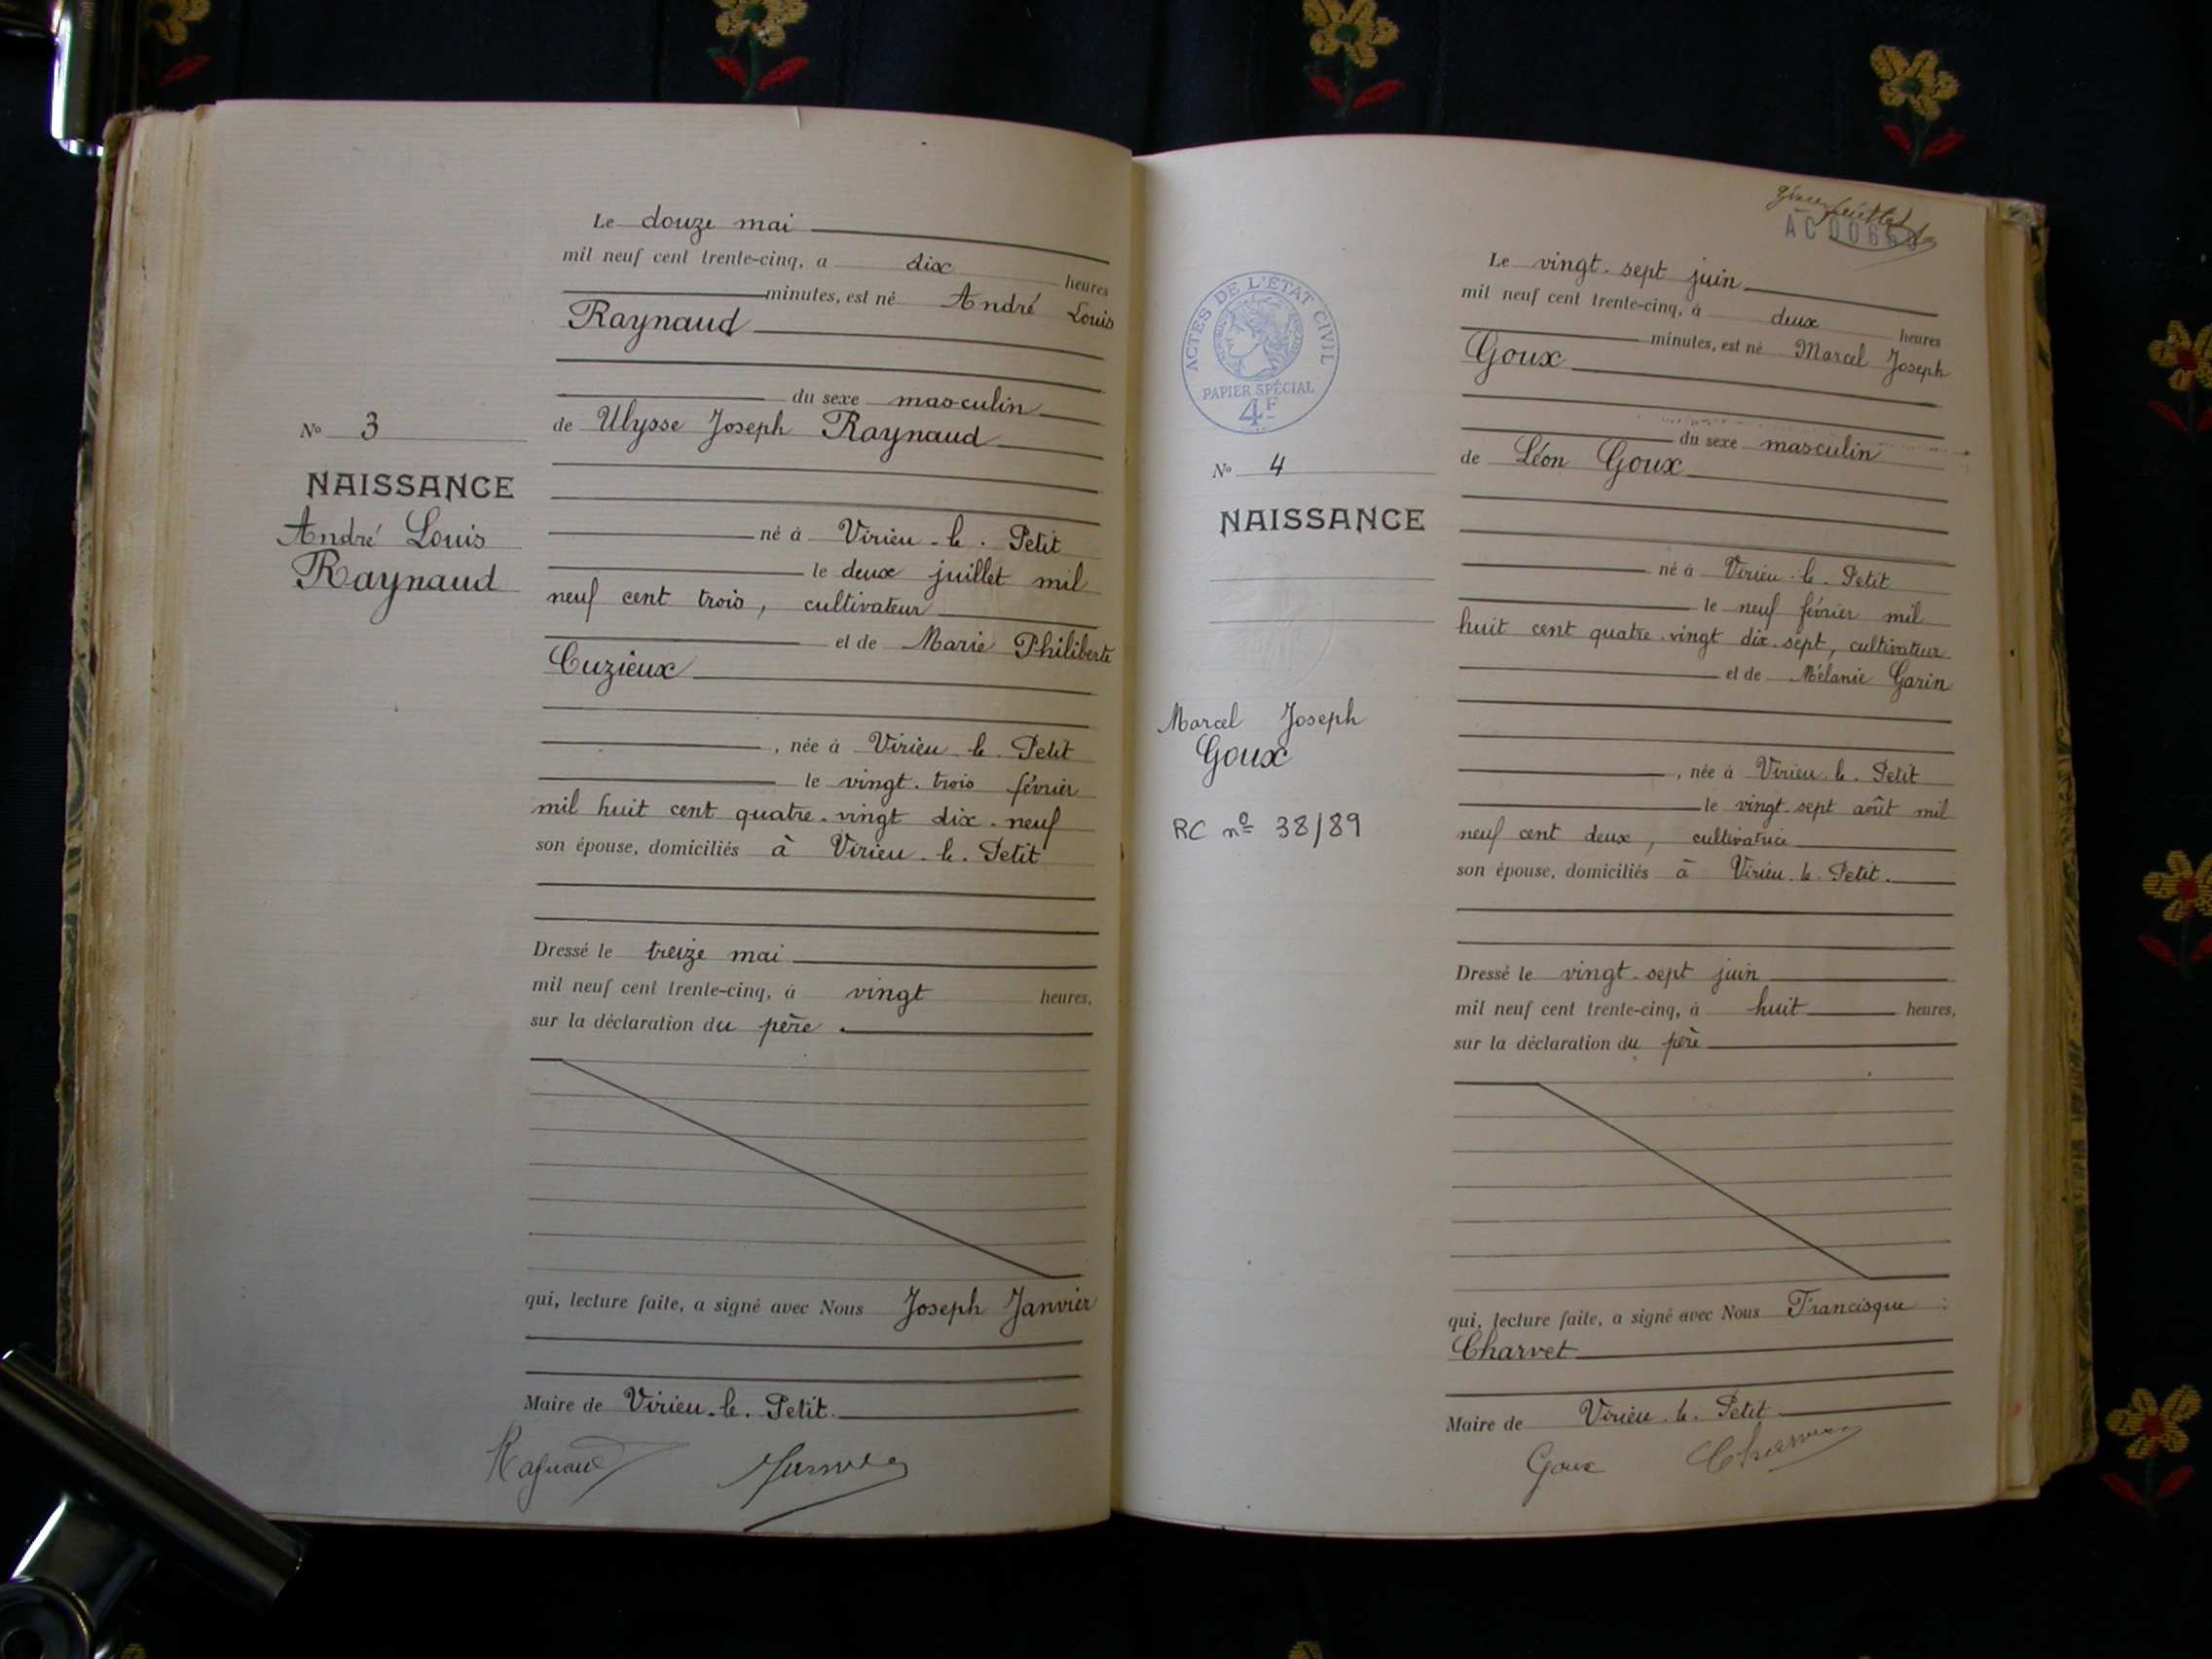 Le douze mai
mil neuf cent trente-cinq, à dix heures
minutes, est né André Louis
Raynaud
du sexe masculin
de Ulysse Joseph Raynaud
né à Virieu-le-Petit
le deux juillet mil
neuf cent trois, cultivateur
et de Marie Philiberte
Cuzieux
, née à Virieu-le-Petit
le vingt-trois février
mil huit cent quatre-vingt dix-neuf
son épouse, domiciliés à Virieu-le-Petit
Dressé le treize mai
mil neuf cent trente-cinq, à vingt heures,
sur la déclaration du père.
qui, lecture faite, a signé avec Nous Joseph Janvier
Maire de Virieu-le-Petit
Raynaud
No 3
NAISSANCE
André Louis
Raynaud
AC
Le vingt-sept juin
mil neuf cent trente-cinq, à deux heures
minutes, est né Marcel Joseph
Goux
du sexe masculin
de Léon Goux
né à Virieu-le-Petit
le neuf février mil
huit cent quatre-vingt dix-sept, cultivateur
et de Mélanie Garin
, née à Virieu-le-Petit
le vingt-sept août mil
neuf cent deux, cultivatrice
son épouse, domiciliés à Virieu-le-Petit.
Dressé le vingt-sept juin
mil neuf cent trente-cinq, à huit heures,
sur la déclaration du père
qui, lecture faite, a signé avec Nous Francisque
Charvet
Maire de Virieu-le-Petit
Goux Charvet
ACTES DE L'ÉTAT CIVIL
PAPIER SPÉCIAL
4F
No 4
NAISSANCE
Marcel Joseph
Goux
RC no 38/89